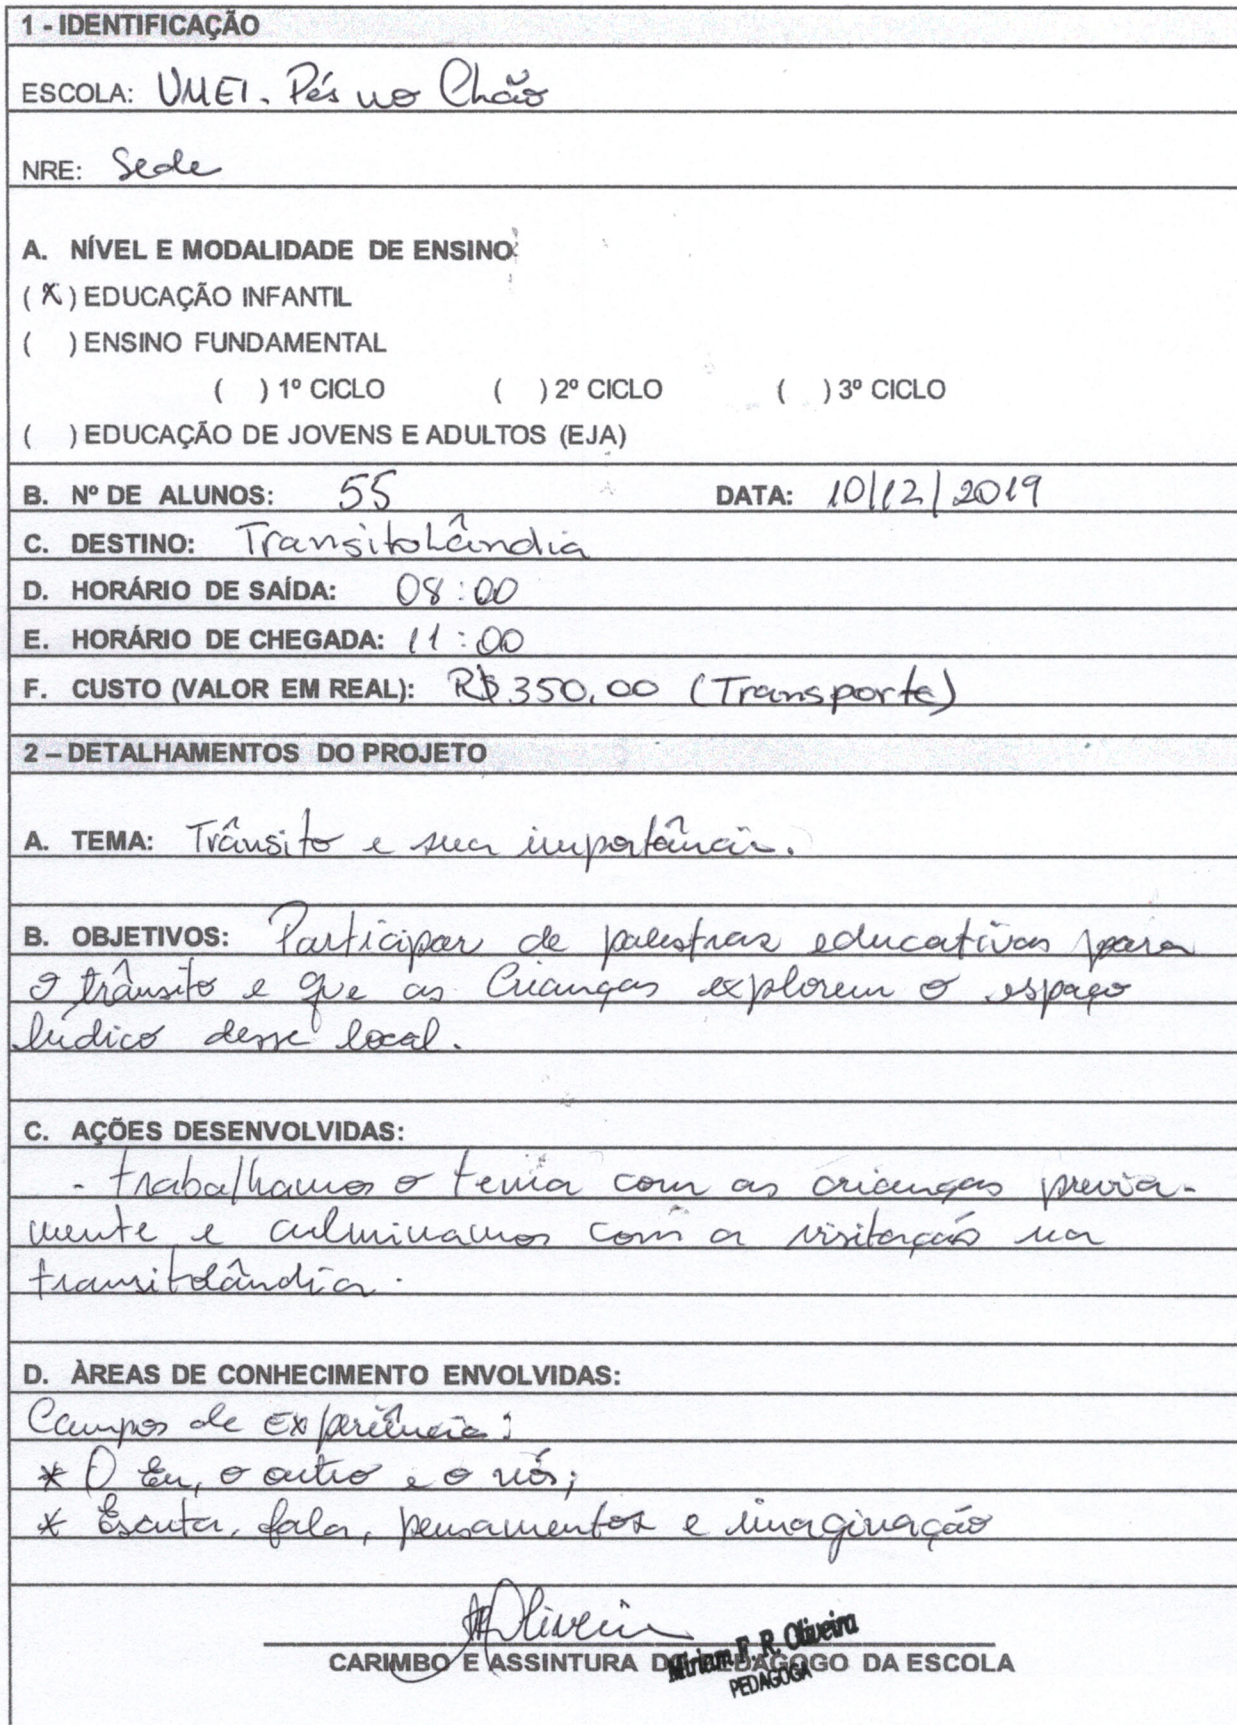 1 - IDENTIFICAÇÃO
ESCOLA: UMEI. Pés no Chão
NRE: Sede
A. NÍVEL E MODALIDADE DE ENSINO:
( X ) EDUCAÇÃO INFANTIL
( ) ENSINO FUNDAMENTAL
( ) 1º CICLO ( ) 2º CICLO ( ) 3º CICLO
( ) EDUCAÇÃO DE JOVENS E ADULTOS (EJA)
B. Nº DE ALUNOS: 55 DATA: 10/12/2019
C. DESTINO: Transitolândia
D. HORÁRIO DE SAÍDA: 08:00
E. HORÁRIO DE CHEGADA: 11:00
F. CUSTO (VALOR EM REAL): R$ 350,00 (Transporte)
2 – DETALHAMENTOS DO PROJETO
A. TEMA: Trânsito e sua importância.
B. OBJETIVOS: Participar de palestras educativas para
o trânsito e que as Crianças explorem o espaço
lúdico desse local.
C. AÇÕES DESENVOLVIDAS:
- trabalhamos o tema com as crianças previa-
mente e culminamos com a visitação na
transitolândia.
D. ÀREAS DE CONHECIMENTO ENVOLVIDAS:
Campos de Experiência:
* O Eu, o outro e o nós;
* Escuta, fala, pensamentos e imaginação
Oliveira
Miriam F. R. Oliveira
PEDAGOGA
CARIMBO E ASSINTURA DO PEDAGOGO DA ESCOLA